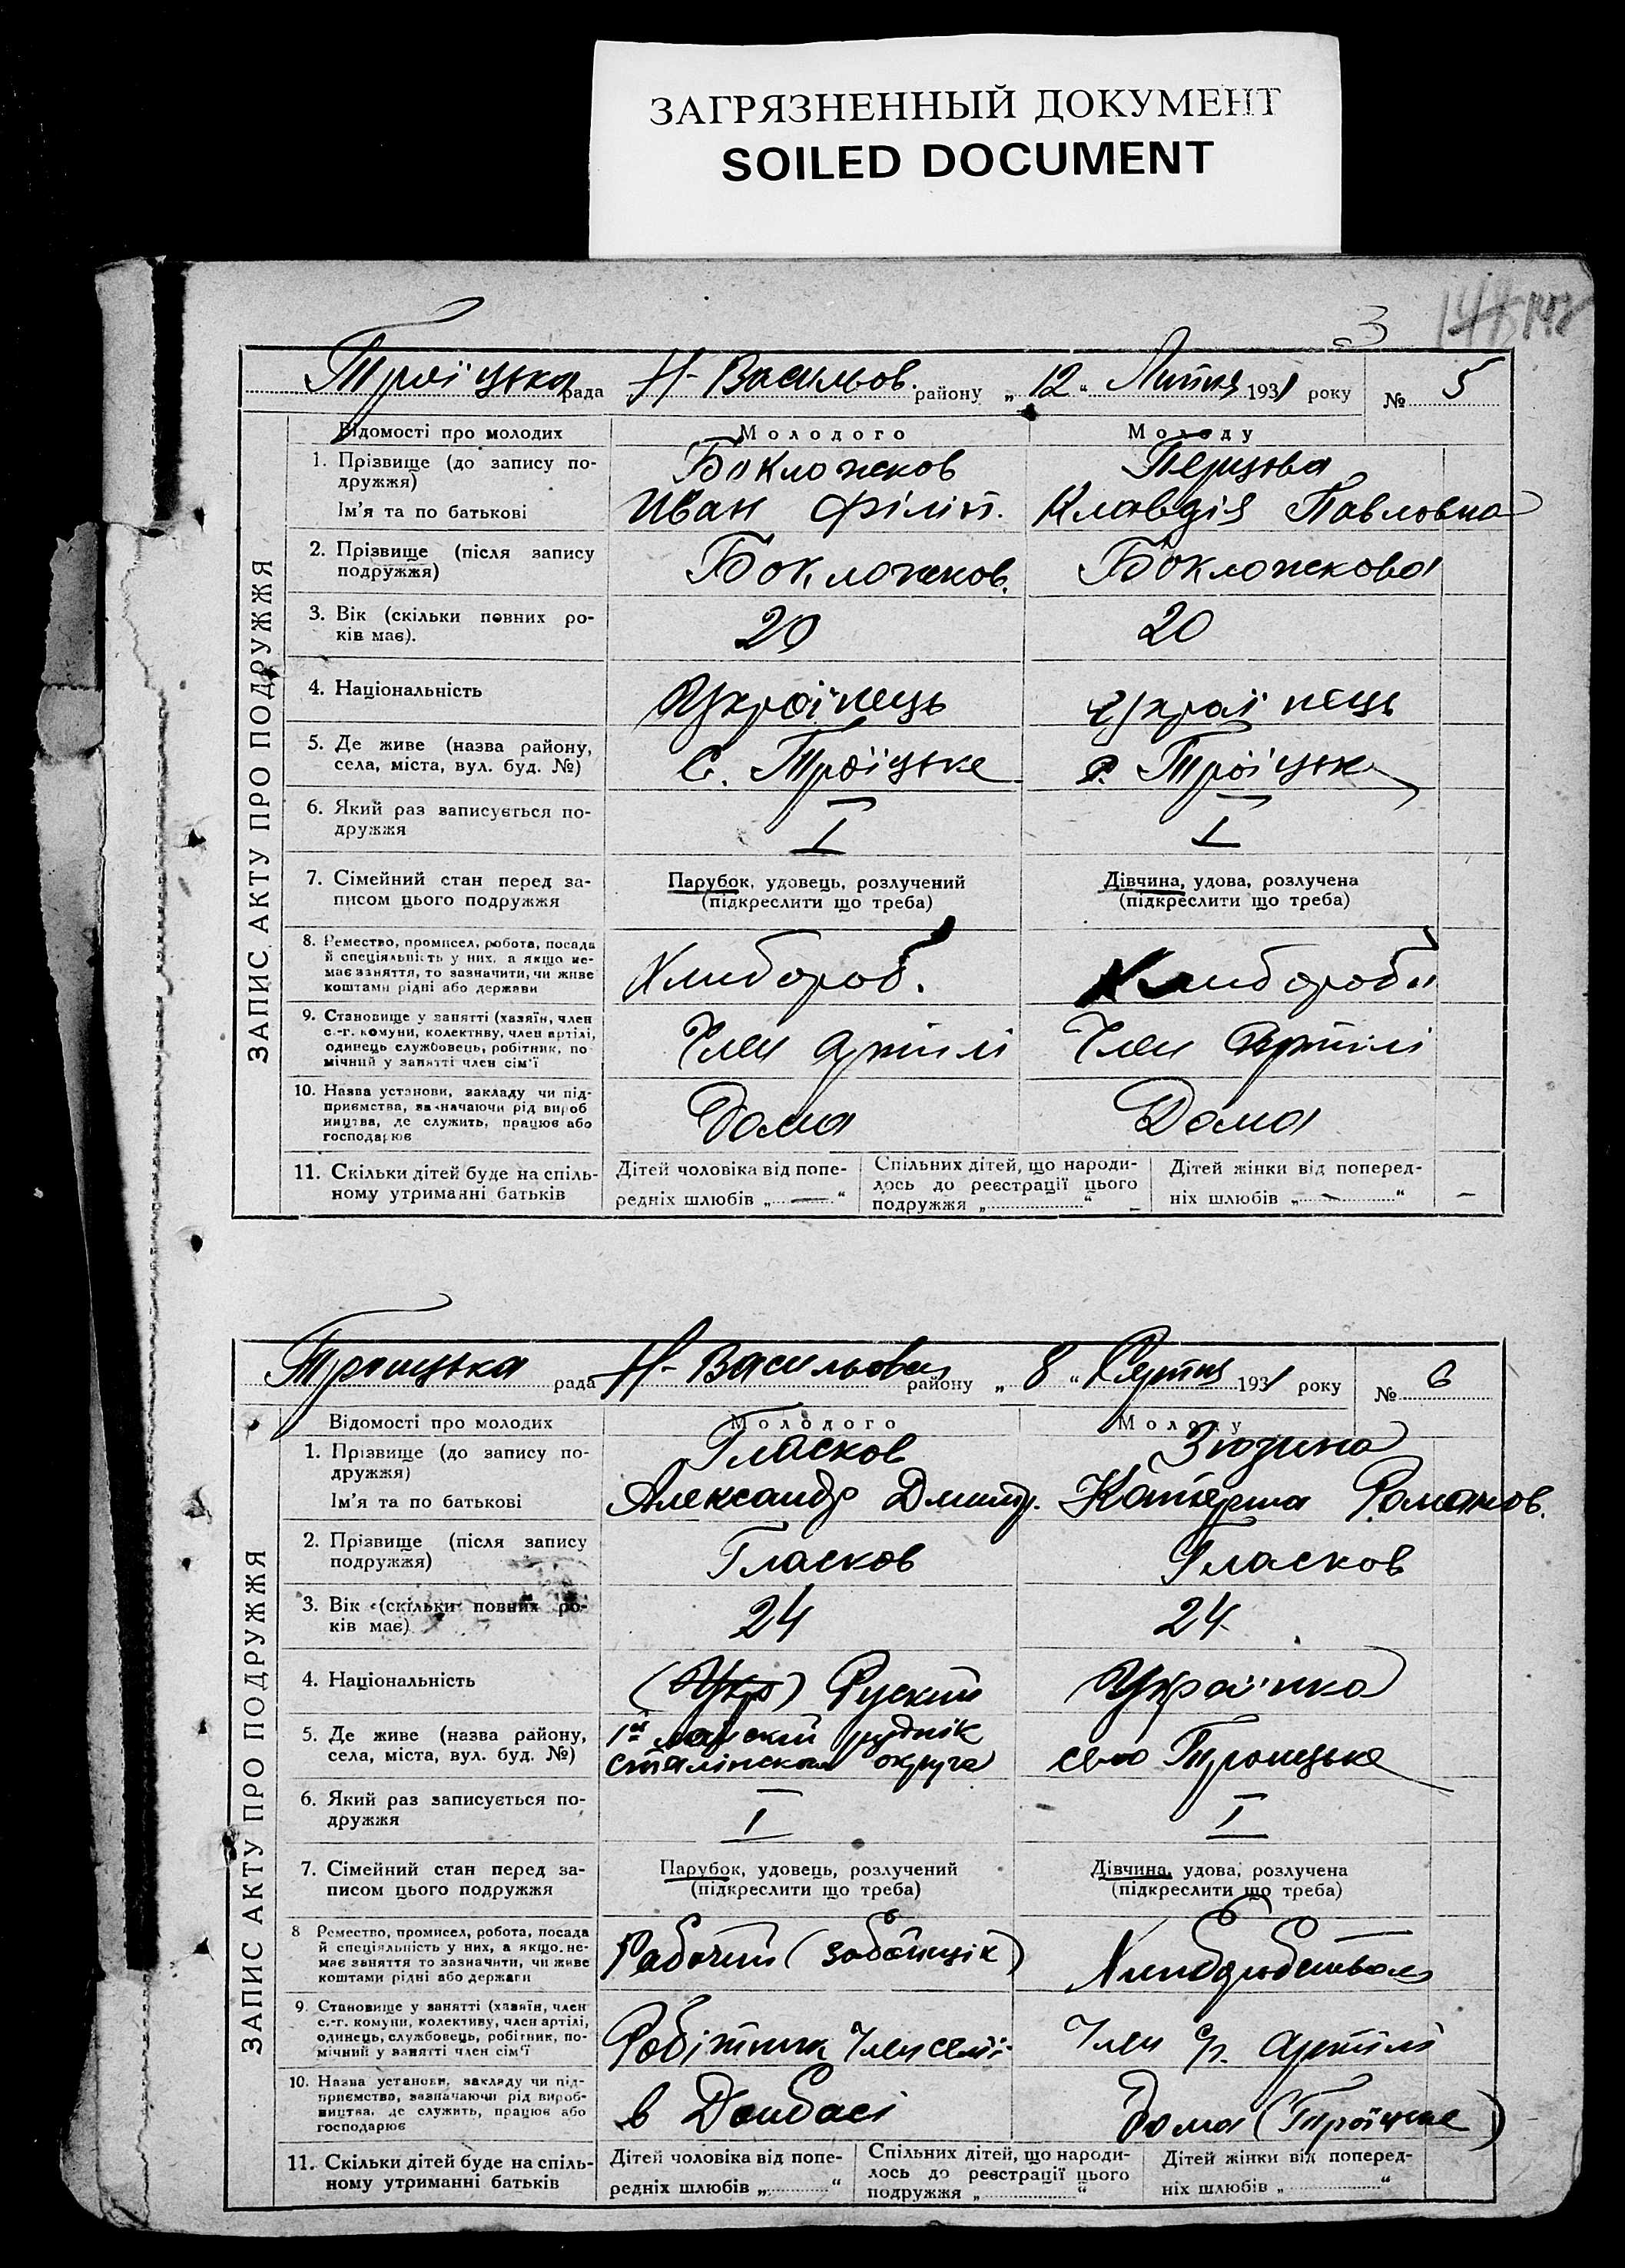 ЗАГРЯЗНЕННЫЙ ДОКУМЕНТ
SOILED DOCUMENT
3
Троїцька рада Н-Васильов. району „ 12 “ Липня 1931 року № 5
ЗАПИС АКТУ ПРО ПОДРУЖЖЯ
Відомості про молодих Молодого Молоду
1. Прізвище (до запису по- Боклажков Перцова
дружжя)
Ім'я та по батькові Иван Філіп. Клавдія Павловна
2. Прізвище (після запису Боклажков. Боклажкова
подружжя)
3. Вік (скільки повних ро- 20 20
ків має).
4. Національність Українець Українець
5. Де живе (назва району, С. Троїцьке с. Троїцьке
села, міста, вул. буд. №)
6. Який раз записується по- I I
дружжя
7. Сімейний стан перед за- Парубок, удовець, розлучений Дівчина, удова, розлучена
писом цього подружжя (підкреслити що треба) (підкреслити що треба)
8. Ремество, промисел, робота, посада
й спеціяльність у них, а якщо не- Хлибороб. Хлибороб
має заняття, то зазначити, чи живе
коштами рідні або держави
9. Становище у занятті (хазяїн, член
с.-г. комуни, колективу, член артілі, Член артілі Член артілі
одинець службовець, робітник, по
мічний у занятті член сім'ї
10. Назва установи, закладу чи під-
приємства, зазначаючи рід вироб Дома Дома
ництва, де служить, працює або
господарює
11. Скільки дітей буде на спіль- Дітей чоловіка від попе- Спільних дітей, що народи- Дітей жінки від поперед-
ному утриманні батьків редніх шлюбів „ — “ лось до реєстрації цього ніх шлюбів „ — “ —
подружжя „ “ —
Троицька рада Н-Васильовськ району „ 8 “ Серпня 1931 року № 6
ЗАПИС АКТУ ПРО ПОДРУЖЖЯ
Відомості про молодих Молодого Молоду
1. Прізвище (до запису по- Гласков Зюзина
дружжя)
Ім'я та по батькові Александр Дмитр. Катерина Романов.
2. Прізвище (після запису Гласков Гласков
подружжя)
3. Вік (скільки повних ро- 24 24
ків має)
4. Національність (Укр) Руский Українка
5. Де живе (назва району, 1й майский руднік
села, міста, вул. буд. №) Сталінская округа село Троицьке
6. Який раз записується по- I I
дружжя
7. Сімейний стан перед за- Парубок, удовець, розлучений Дівчина, удова, розлучена
писом цього подружжя (підкреслити що треба) (підкреслити що треба)
8 Ремество, промисел, робота, посада
й спеціяльність у них, а якщо не- Рабочий (забойщік)
має заняття то зазначити, чи живе
коштами рідні або держави
9. Становище у занятті (хазяїн, член
с.-г. комуни, колективу, член артілі, Робітник Член семї Член артілі
одинець, службовець, робітник, по-
мічний у занятті член сім'ї
10. Назва установи, закладу чи під-
приємства, зазначаючи рід вироб- в Донбасі Дома (Троїцьке)
ництва, де служить, працює або
господарює
11. Скільки дітей буде на спіль- Дітей чоловіка від попе- Спільних дітей, що народи- Дітей жінки від поперед-
ному утриманні батьків редніх шлюбів „ “ лось до реєстрації цього ніх шлюбів „ “
подружжя „ “